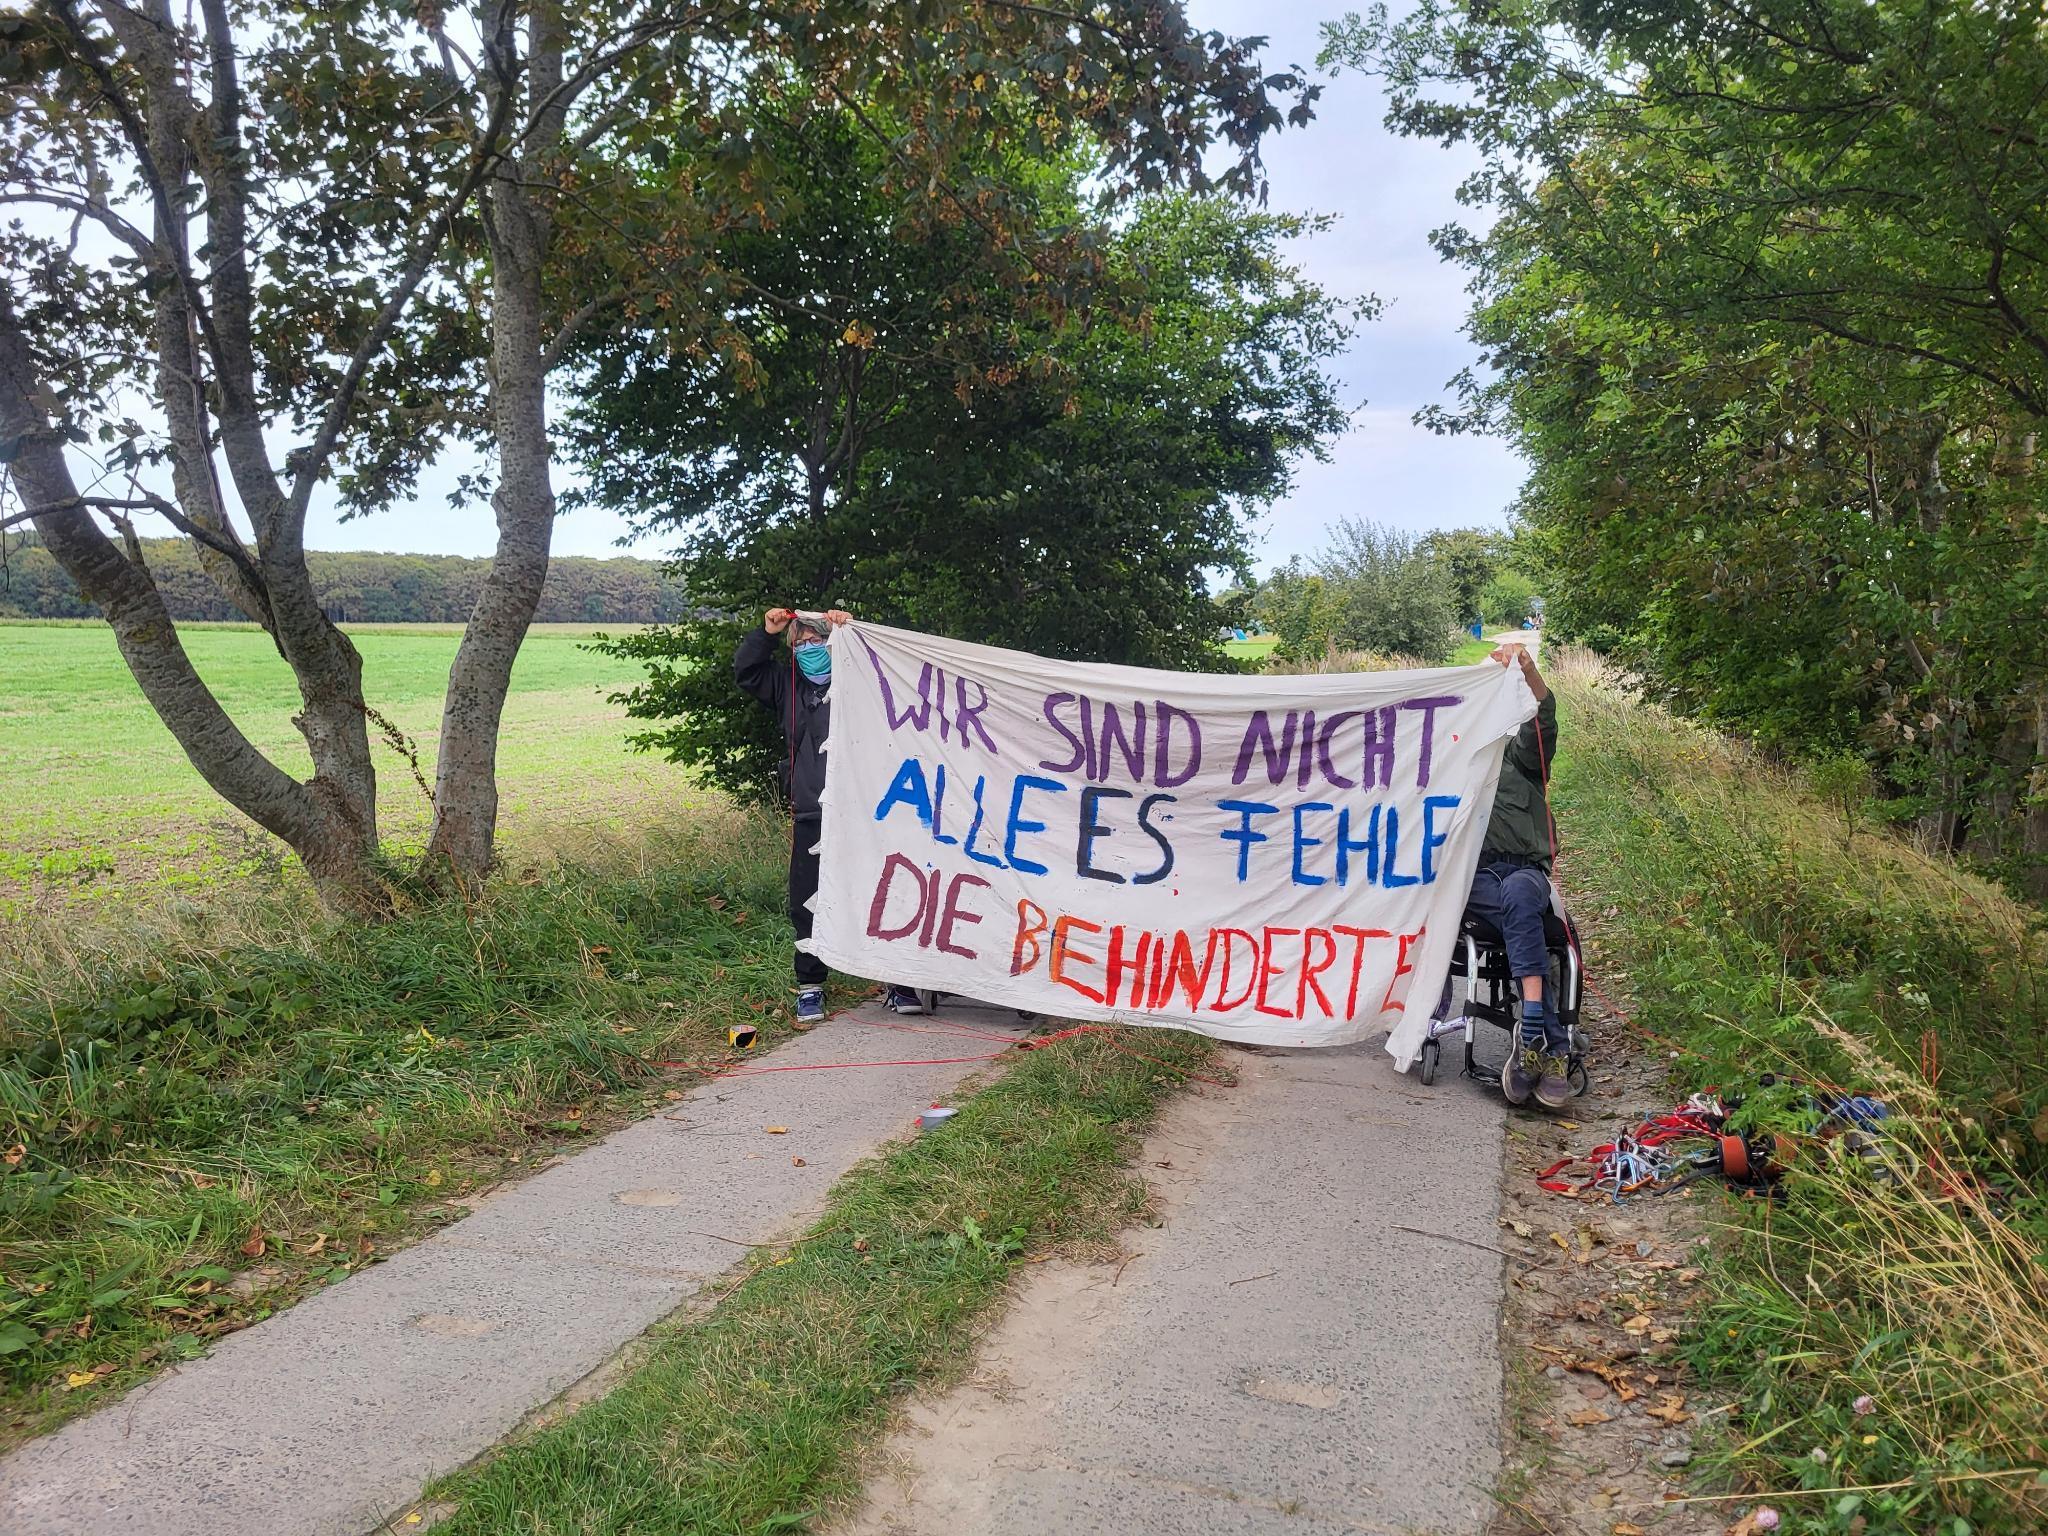 WIR SIND NICHT
ALLE ES FEHLE
DIE BEHINDERTE